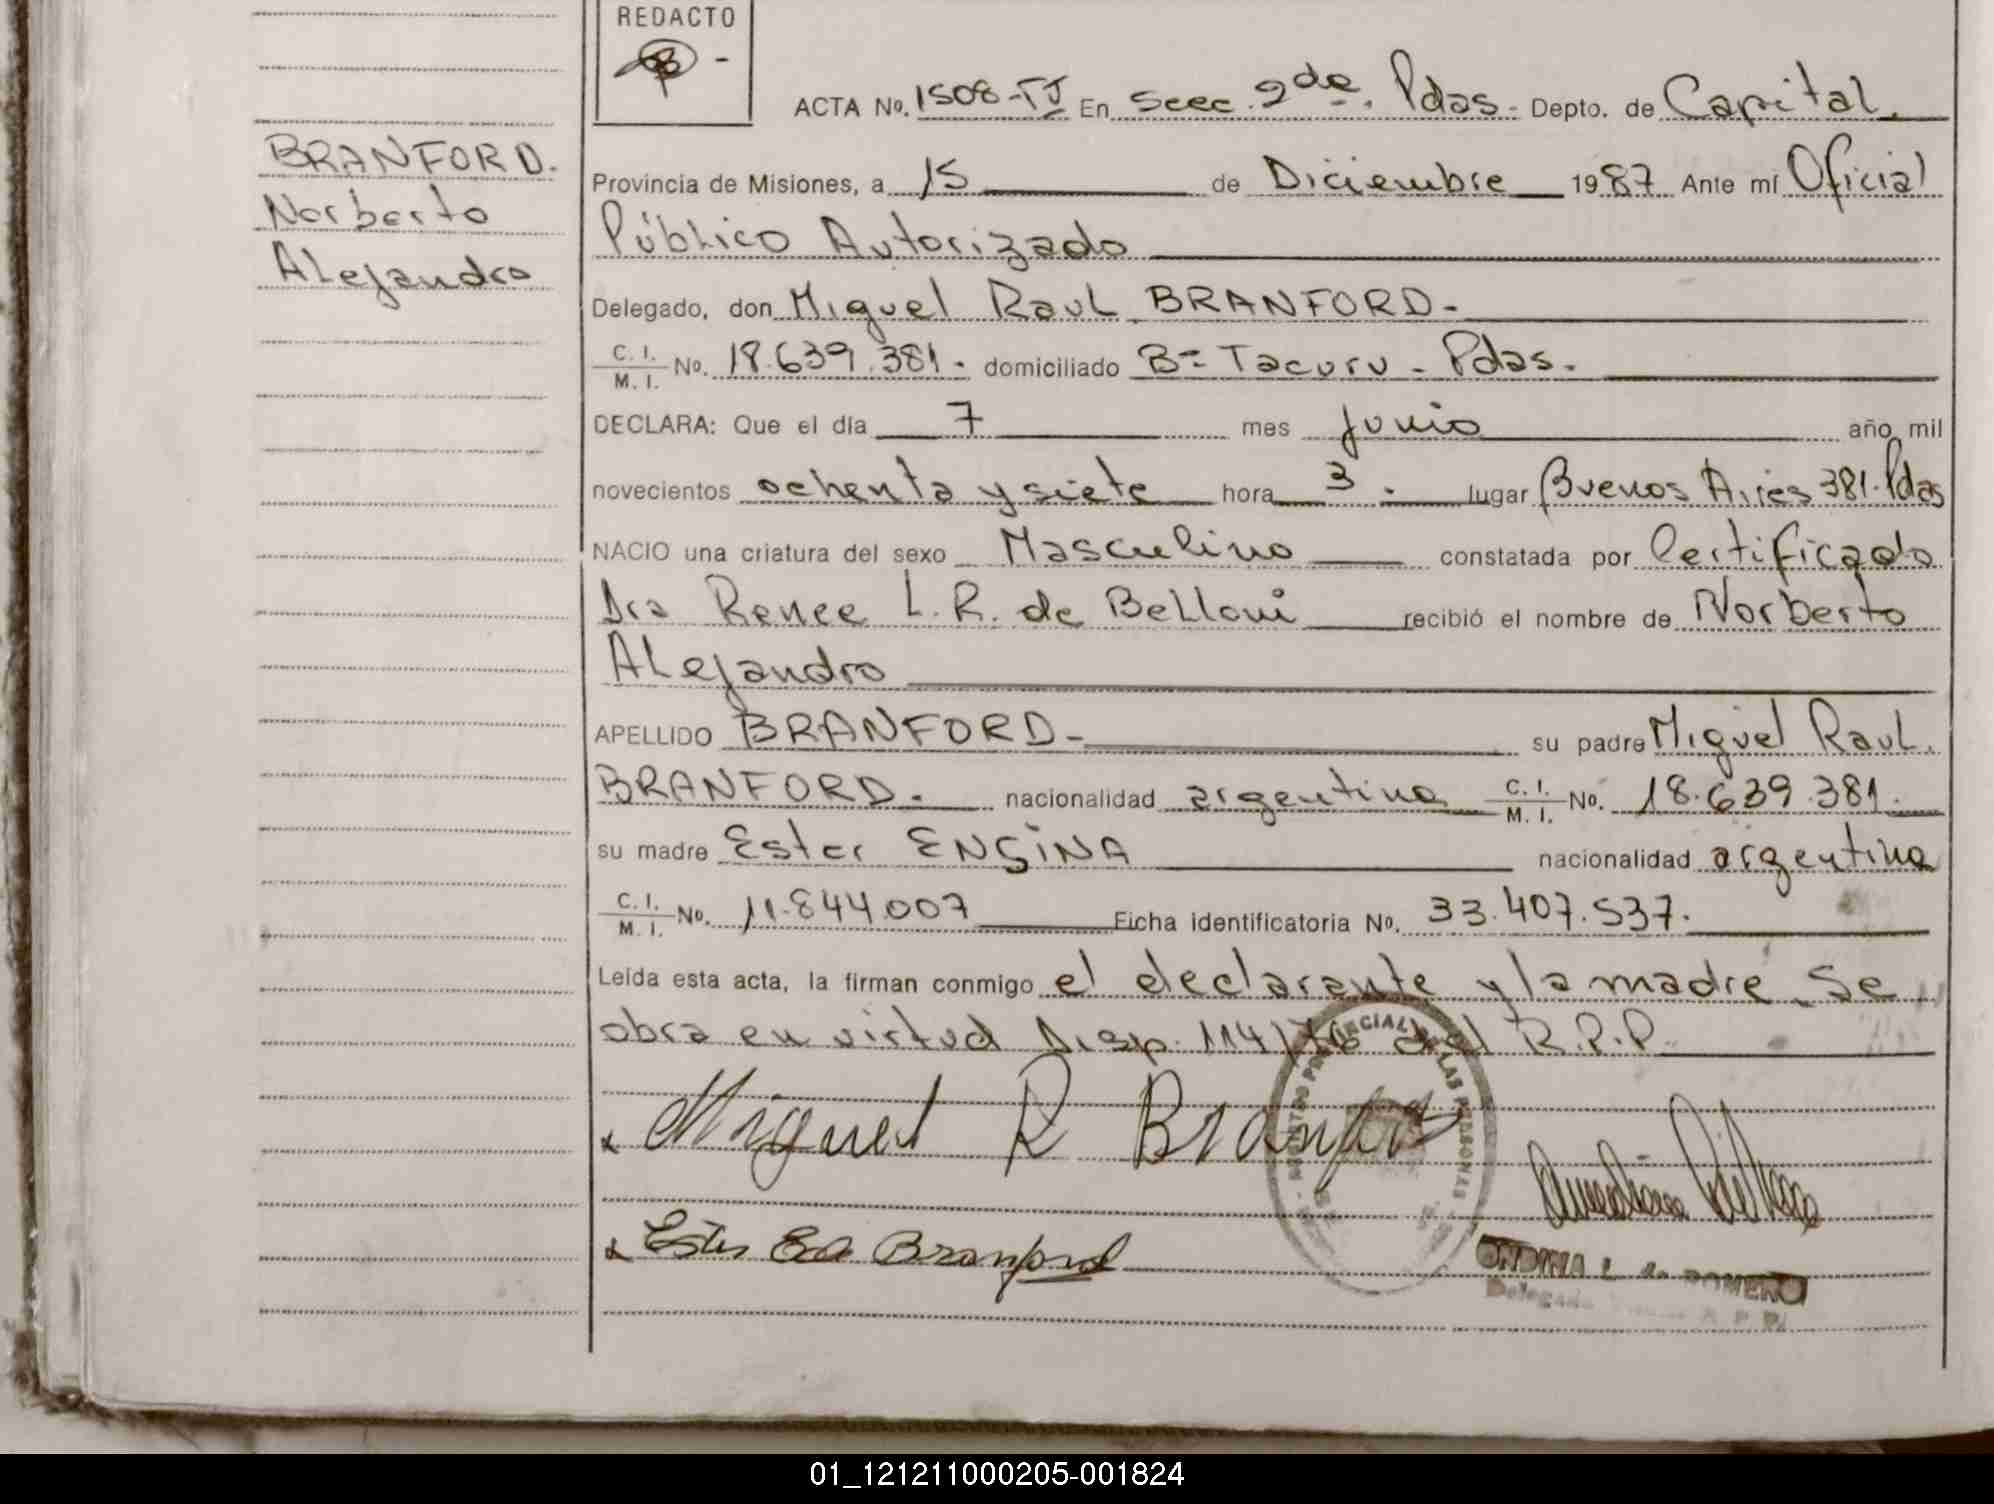 REDACTO
BRANFORD.
Norberto
Alejandro
ACTA No. 1508-TJ En Secc. 2da. Pdas. Depto. de Capital.
Provincia de Misiones, a 15 de Diciembre 1987 Ante mí Oficial
Público Autorizado
Delegado, don Miguel Raul BRANFORD-
C. I.
M. I.
No. 18.639.381. domiciliado B= Tacuru - Pdas.
DECLARA: Que el día 7 mes junio año mil
novecientos ochenta y siete hora 3. lugar Buenos Aires 381. Pdas
NACIO una criatura del sexo Masculino constatada por Certificado
Dra Renee L. R. de Belloni recibió el nombre de Norberto
Alejandro
APELLIDO BRANFORD- su padre Miguel Raul.
BRANFORD. nacionalidad argentina C. I.
M. I. No. 18.639.381.
su madre Ester ENSINA nacionalidad argentina
C. I.
M. I. No. 11.844.007 Ficha identificatoria No. 33.407.537.
Leída esta acta, la firman conmigo el declarante y la madre. Se
obra en virtud Disp. 114/76 del R.P.P
Miguel R Branford
Ester Branford
ONDINA L. de ROMERO
01_121211000205-001824